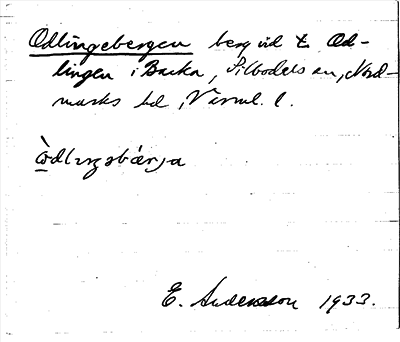 Odlingebergen berg vid t. Od-
lingen i Backa, Silbodals sn, Nord-
marks hd, Värml. l.
òdlıŋsbǽrja
E. Andersson 1933.